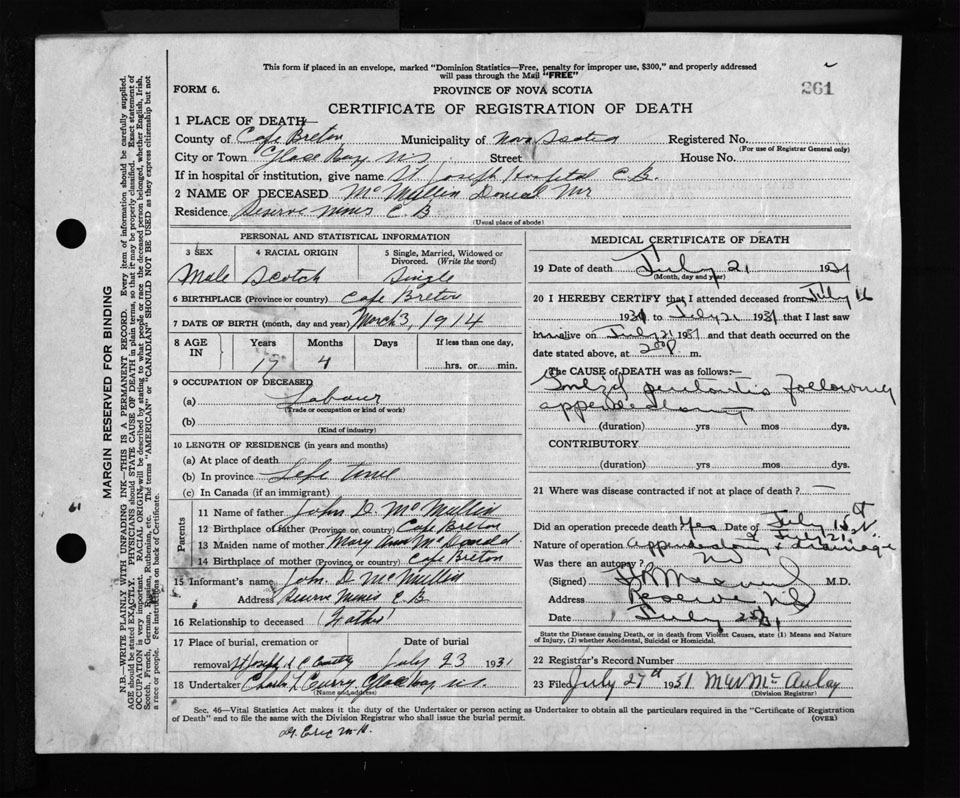 This form if placed in an envelope, marked "Dominion Statistics—Free, penalty for improper use, $300," and properly addressed
will pass through the Mail "FREE"
FORM 6. PROVINCE OF NOVA SCOTIA 261
CERTIFICATE OF REGISTRATION OF DEATH
1 PLACE OF DEATH—
County of Cape Breton Municipality of Nova Scotia Registered No.
(For use of Registrar General only)
City or Town Glace Bay NS. Street House No.
If in hospital or institution, give name St. Joseph Hospital C.B.
2 NAME OF DECEASED McMullin Daniel Mr
Residence Reserve Mines C.B
(Usual place of abode)
PERSONAL AND STATISTICAL INFORMATION
3 SEX 4 RACIAL ORIGIN 5 Single, Married, Widowed or Divorced. (Write the word)
Male Scotch Single
6 BIRTHPLACE (Province or country) Cape Breton
7 DATE OF BIRTH (month, day and year) March 3, 1914
8 AGE IN Years Months Days If less than one day,
17 4 hrs. or min.
9 OCCUPATION OF DECEASED
(a) Labour
(Trade or occupation or kind of work)
(b)
(Kind of industry)
10 LENGTH OF RESIDENCE (in years and months)
(a) At place of death
(b) In province Life time
(c) In Canada (if an immigrant)
Parents
11 Name of father John D. McMullin
12 Birthplace of father (Province or country) Cape Breton
13 Maiden name of mother Mary Ann
14 Birthplace of mother (Province or country) Cape Breton
15 Informant's name John. D McMullin
Address Reserve Mines C.B
16 Relationship to deceased Father
17 Place of burial, cremation or Date of burial
removal St Joseph R. C. July 23 1931
18 Undertaker Charles L Curry Glace Bay N.S.
(Name and address)
MEDICAL CERTIFICATE OF DEATH
19 Date of death July 21 1931
(Month, day and year)
20 I HEREBY CERTIFY that I attended deceased from July 16
1931 to July 21 1931 that I last saw
him alive on July 21 1931 and that death occurred on the
date stated above, at m.
The CAUSE of DEATH was as follows:—
peritonitis following
appendectomy
(duration) yrs mos. dys.
CONTRIBUTORY
(duration) yrs. mos. dys.
21 Where was disease contracted if not at place of death? —
Did an operation precede death yes Date of July 15th
& July 21st
Nature of operation Appendectomy & drainage
Was there an autopsy? No
(Signed) M.D.
Address Reserve N.S
Date July
State the Disease causing Death, or in death from Violent Causes, state (1) Means and Nature
of Injury, (2) whether Accidental, Suicidal or Homicidal.
22 Registrar's Record Number
23 Filed July 27th 1931 M McAulay
(Division Registrar)
Sec. 46—Vital Statistics Act makes it the duty of the Undertaker or person acting as Undertaker to obtain all the particulars required in the "Certificate of Registration
of Death" and to file the same with the Division Registrar who shall issue the burial permit. (OVER)
MARGIN RESERVED FOR BINDING
N.B.—WRITE PLAINLY WITH UNFADING INK—THIS IS A PERMANENT RECORD. Every item of information should be carefully supplied.
AGE should be stated EXACTLY. PHYSICIANS should STATE CAUSE OF DEATH in plain terms, so that it may be properly classified. Exact statement of
OCCUPATION is very important. RACIAL ORIGIN will be described by stating to what people or race the deceased person belonged, whether English, Irish,
Scotch, French, German, Russian, Ruthenian, etc. The terms "AMERICAN" or "CANADIAN" SHOULD NOT BE USED as they express citizenship but not
a race or people. Fee instructions on back of Certificate.